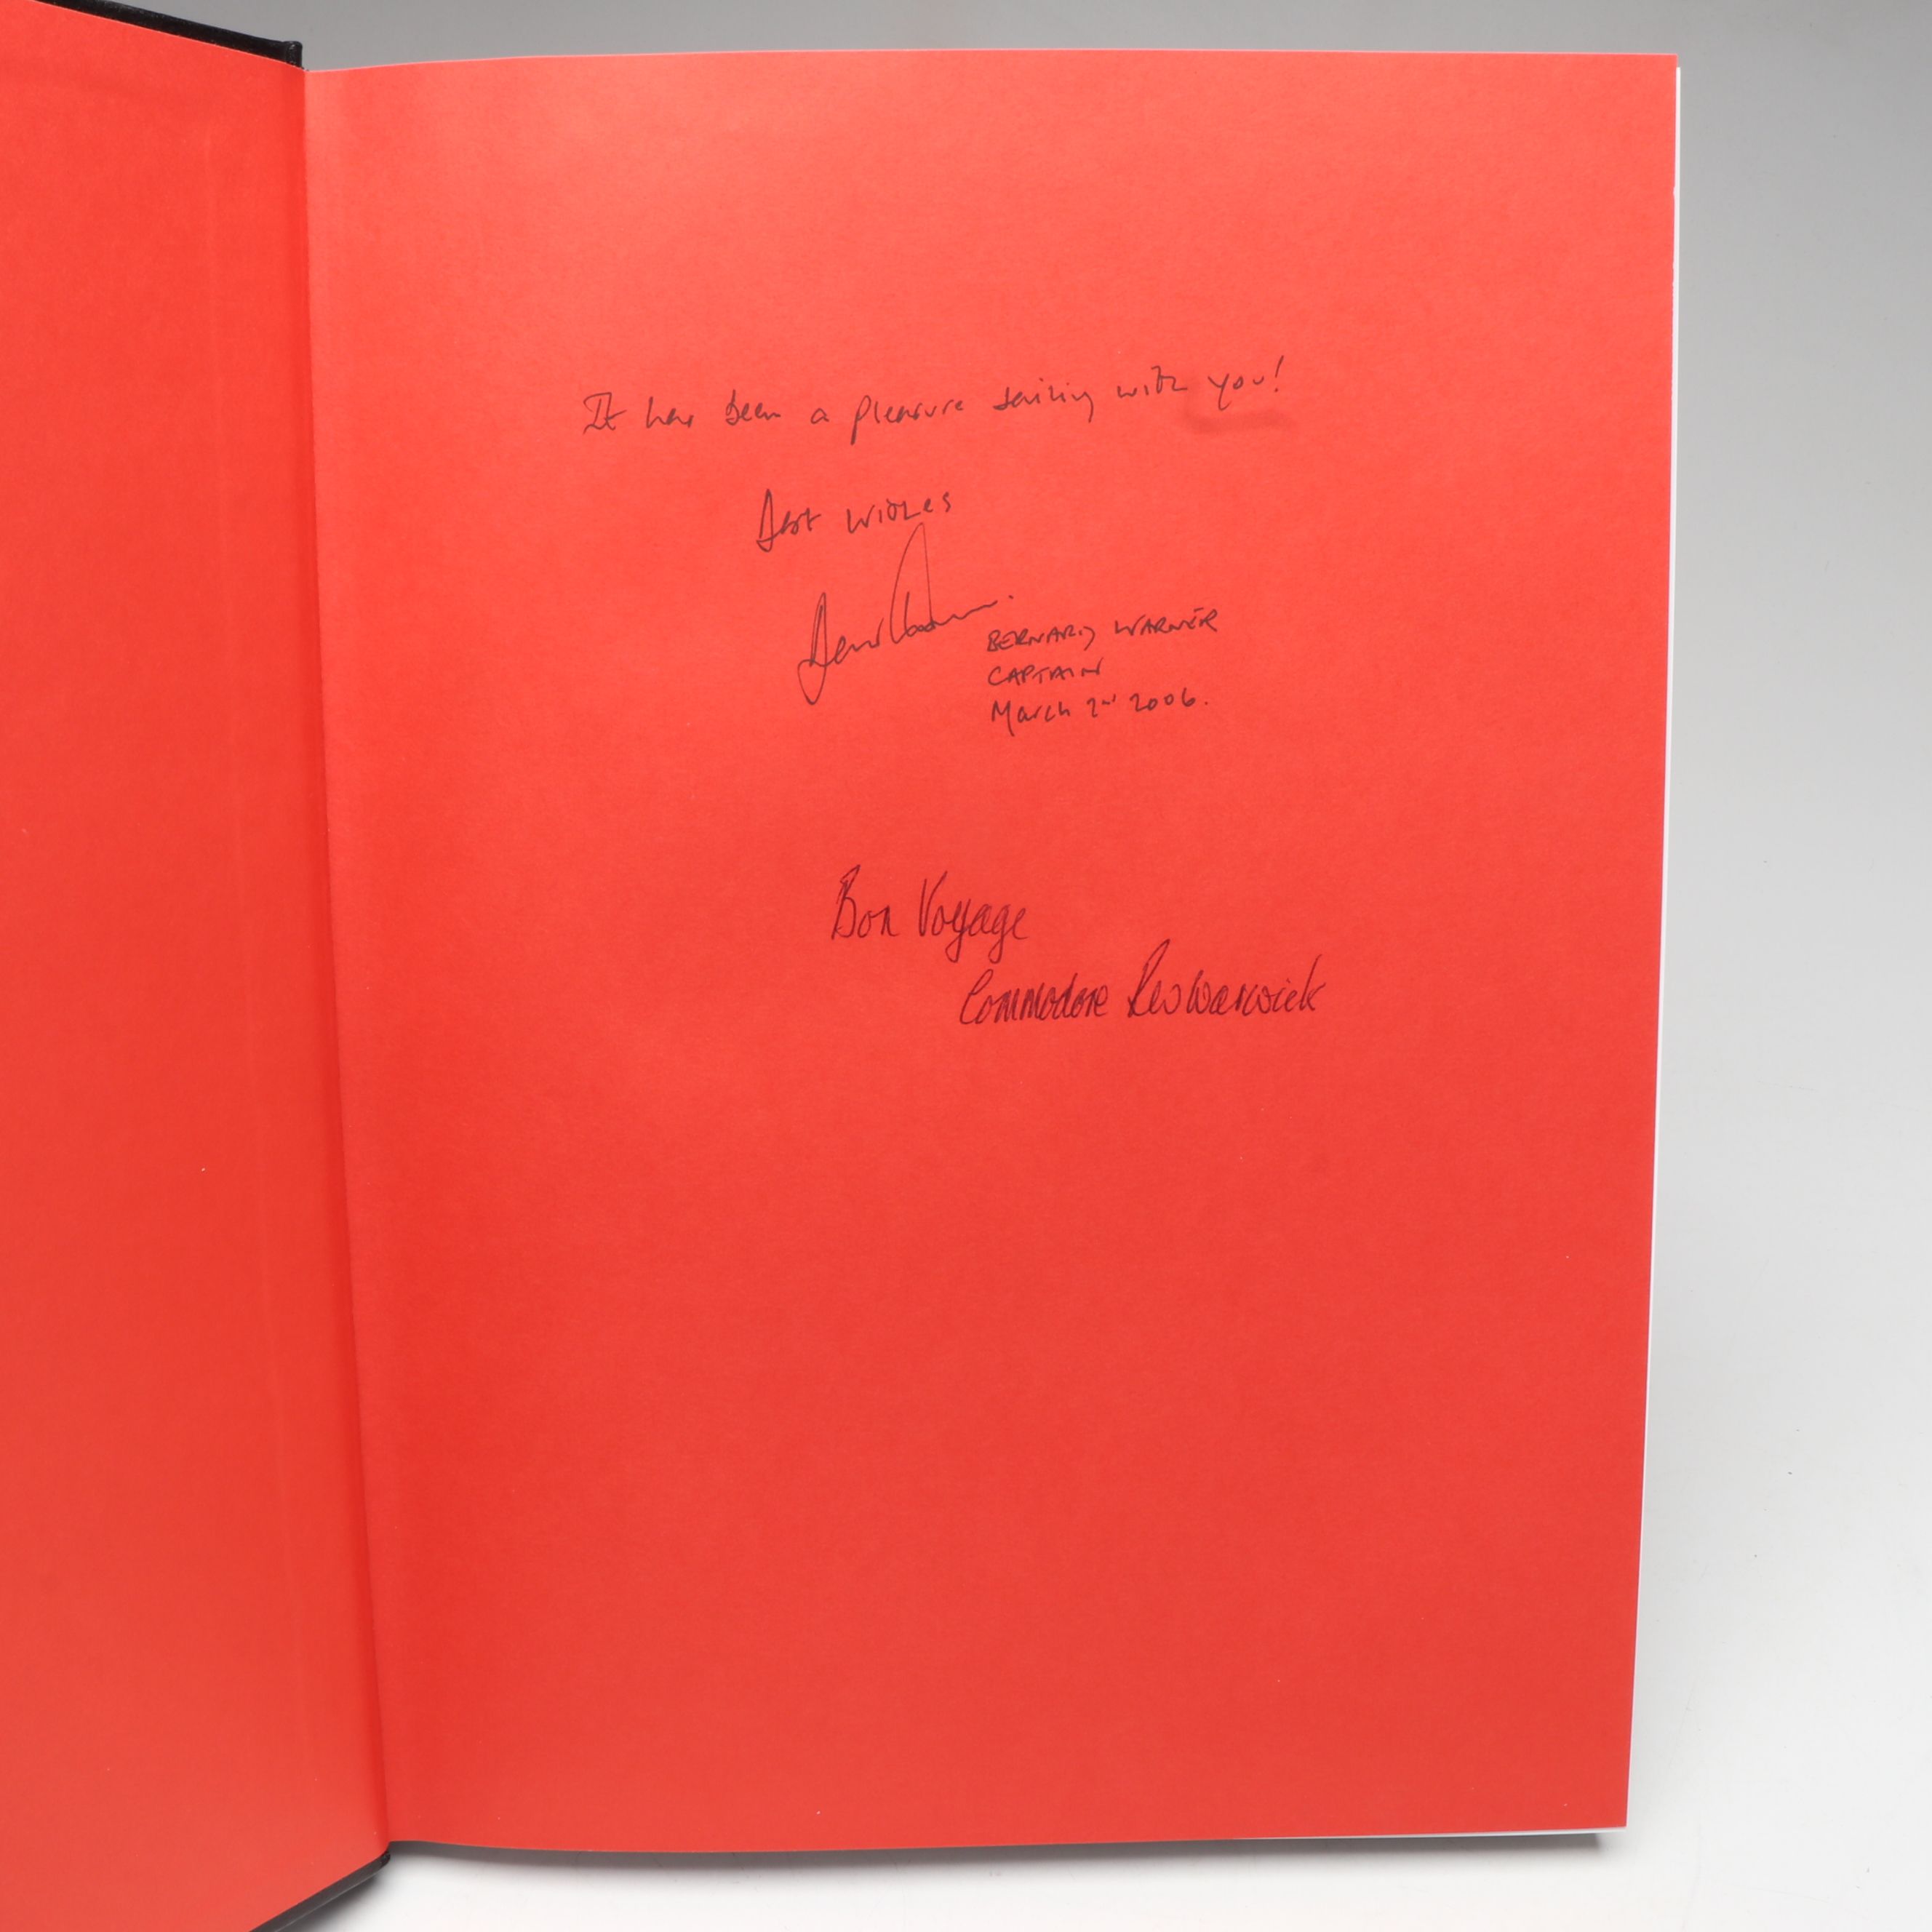 It has been a pleasure sailing with you!
Best Wishes
BERNARD WARNER
CAPTAIN
March 2nd 2006.
Bon Voyage
Commodore RW Warwick